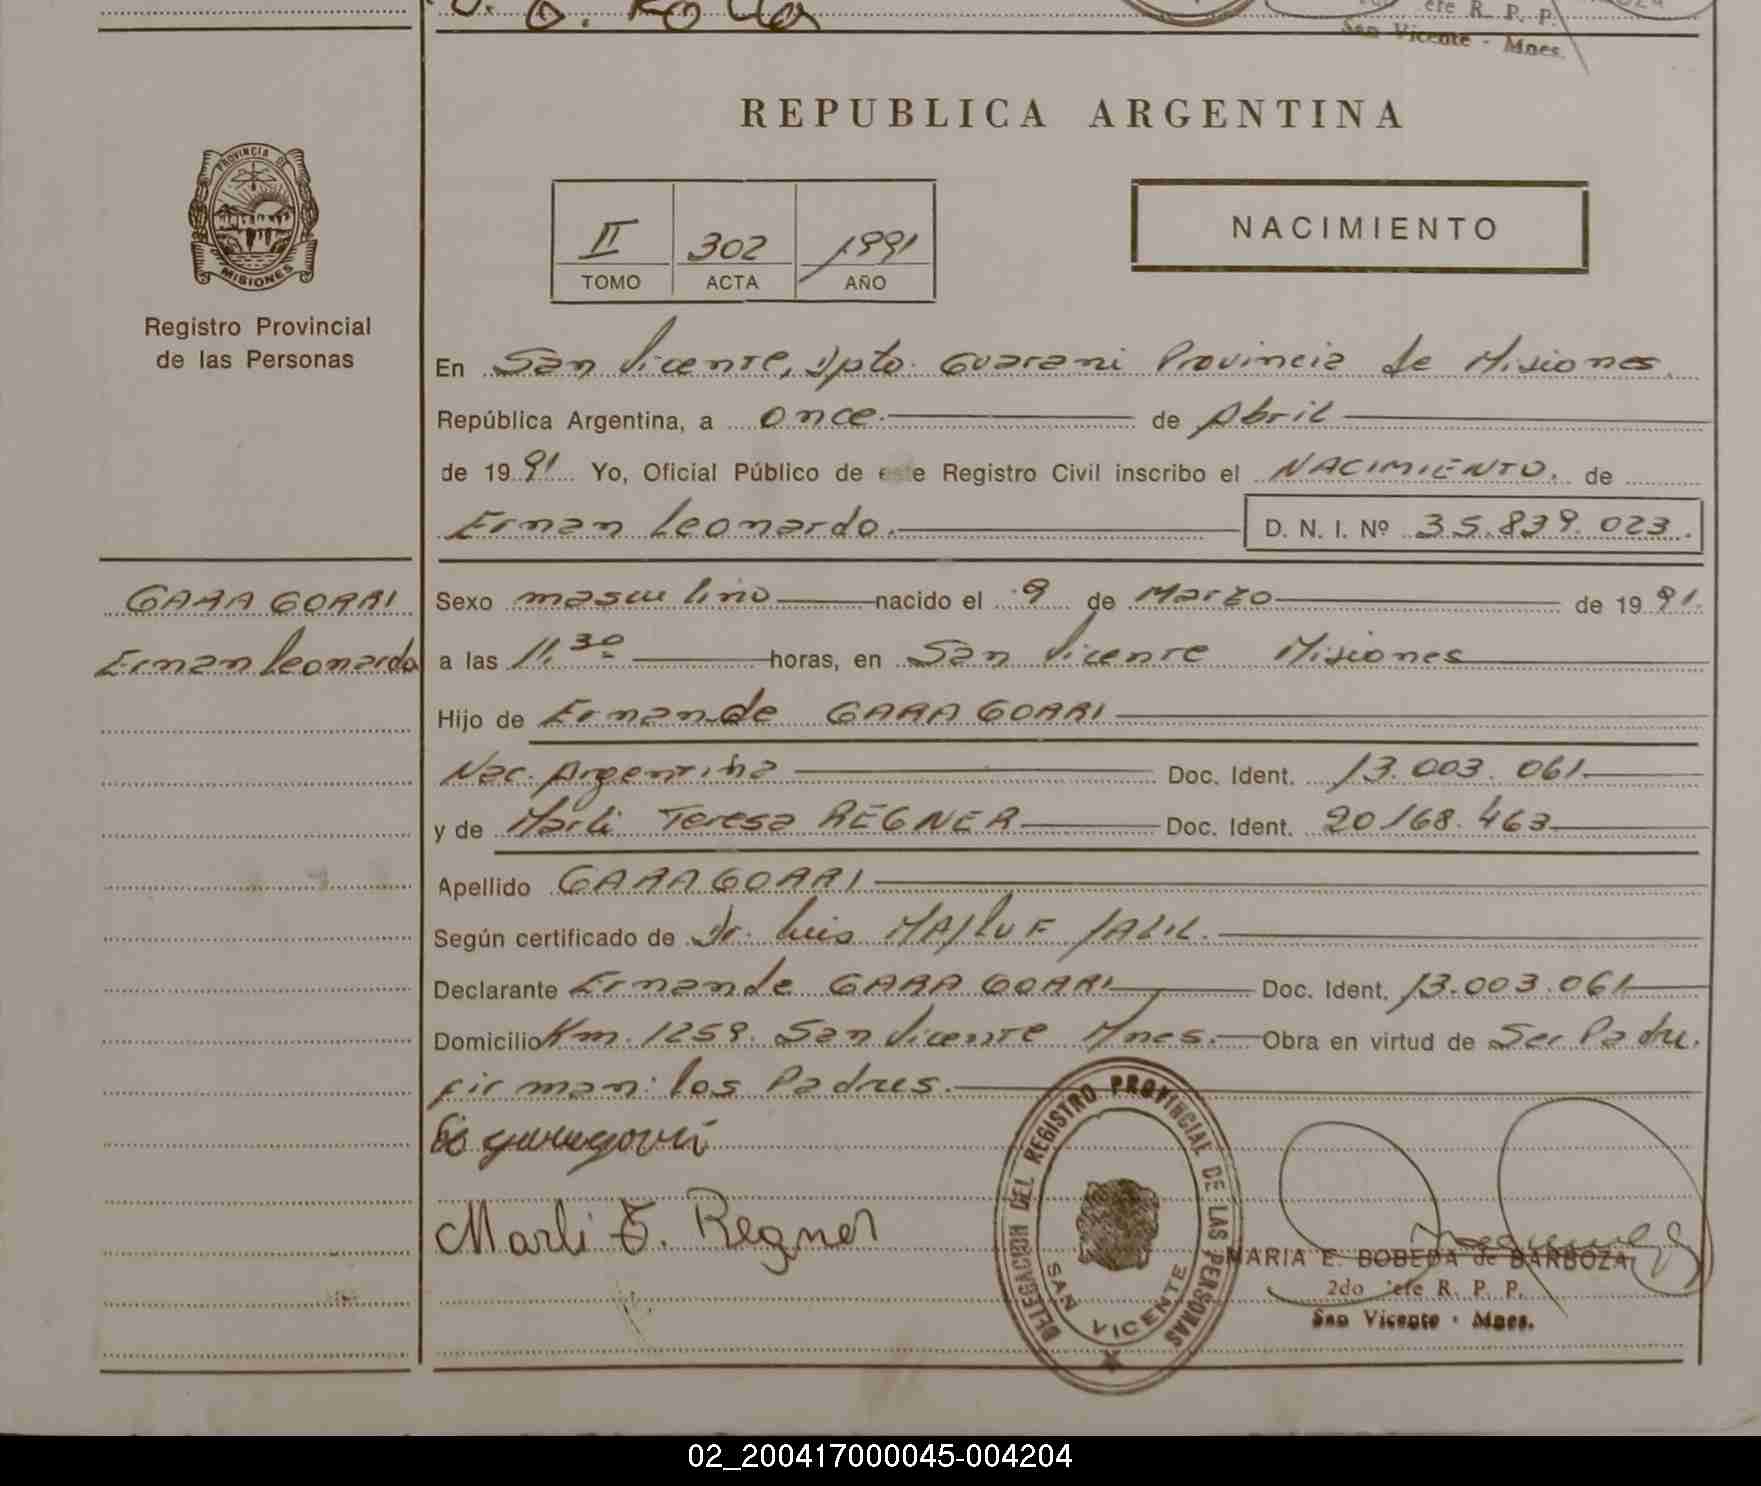 San Vicente - Mnes.
REPUBLICA ARGENTINA
PROVINCIA DE
MISIONES
Registro Provincial
de las Personas
II 302 1991
TOMO ACTA AÑO
NACIMIENTO
En San Vicente, Dpto. Guarani Provincia de Misiones
República Argentina, a once de Abril
de 1991 Yo, Oficial Público de este Registro Civil inscribo el NACIMIENTO. de
Ernan Leonardo. D. N. I. Nº 35.839.023.
GARAGORRI
Ernan Leonardo
Sexo masculino nacido el 9 de Marzo de 1991.
a las 11.30 horas, en San Vicente Misiones
Hijo de Ernande GARAGORRI
Nac. Argentina Doc. Ident. 13.003.061
y de Marli Teresa REGNER Doc. Ident. 20168.463
Apellido GARAGORRI
Según certificado de Dr. Luis MAJLUF JALIL.
Declarante Ernande GARAGORRI Doc. Ident. 13.003.061
Domicilio Km. 1259. San Vicente Mnes. Obra en virtud de Ser Padre.
firman: los Padres.
garagorri
Marli T. Regner
DELEGACION DEL REGISTRO PROVINCIAL DE LAS PERSONAS
SAN VICENTE
MARIA E. BOBEDA de BARBOZA
2do Jefe R. P. P.
San Vicente - Mnes.
02_200417000045-004204